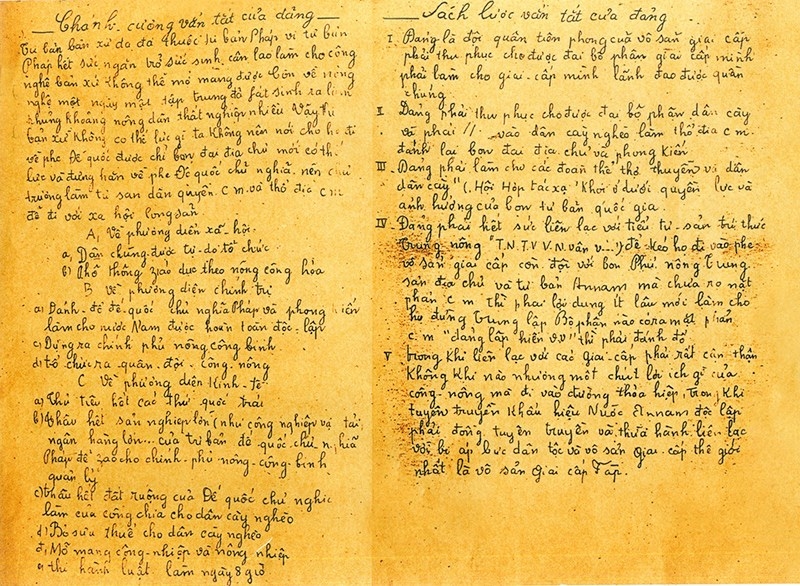 Chanh cương vắn tắt của đảng
Tư bản bản xứ do đã thuộc tư bản Pháp vì tư bản
Pháp hết sức ngăn trở sức sinh sản làm cho công
nghệ bản xứ không thể mở mang được Còn về nông
nghệ một ngày một tập trung đã phát sinh ra lắm
khủng khoảng nông dân thất nghiệp nhiều Vậy tư
bản xứ không có thế lực gì ta không nên nói cho họ đi
về phe Đế quốc được chỉ bọn đại địa chủ mới có thế
lực và đứng hẳn về phe Đế quốc chủ nghĩa nên chủ
trương làm tư sản dân quyền c.m và thổ địa c m
để đi với xã hội cộng sản
A, Về phương diện xã hội
a, Dân chúng được tự do tổ chức
b) Phổ thông giáo dục theo nông công hóa
B Về phương diện chính trị
a) Đánh đổ đế quốc chủ nghĩa Pháp và phong kiến
làm cho nước Nam được hoàn toàn độc lập
c) Dựng ra chính phủ nông công binh
d) tổ chức ra quân đội công nông
C Về phương diện kinh tế
a) Thủ tiêu hết các thứ quốc trái
b) thâu hết sản nghiệp lớn (như công nghiệp vận tải,
ngân hàng lớn... của tư bản đế quốc chủ nghĩa
Pháp để giao cho chính phủ nông công binh
quản lý
c) thâu hết đất ruộng của Đế quốc chủ nghĩa
làm của công chia cho dân cày nghèo
d) Bỏ sưu thuế cho dân cày nghèo
đ) Mở mang công nghiệp và nông nhiệp
e) thi hành luật làm ngày 8 giờ
Sách lược vắn tắt của đảng
I. Đảng là đội quân tiên phong của vô sản giai cấp
phải thu phục cho được đại bộ phận giai cấp mình
phải làm cho giai cấp mình lãnh đạo được quần
chúng
II Đảng phải thu phục cho được đại bộ phận dân cày
và phải // vào dân cày nghèo làm thổ địa c m.
đánh lại bọn đại địa chủ và phong kiến
III Đảng phải làm cho các đoàn thể thợ thuyền và dân
dân cày" (Hội Hợp tác xã khỏi ở dưới quyền lực và
ảnh hưởng của bọn tư bản quốc gia.
IV Đảng phải hết sức liên lạc với tiểu tư sản trí thức
trung nông "T.N.T.V V.N vân v...") để kéo họ đi vào phe
vô sản giai cấp còn đối với bọn Phú nông Trung
sản địa chủ và tư bản Annam mà chưa rõ mặt
phản c m thì phải lợi dụng ít lâu mới làm cho
họ đứng trung lập Bộ phận nào có ra mặt phản
c.m "đảng lập hiến v.v" thì phải đánh đổ
V trong khi liên lạc với các giai cấp phải rất cẩn thận
không khi nào nhường một chút lợi ích gì của
công nông mà đi vào đường thỏa hiệp, trong khi
tuyên truyền khẩu hiệu Nước Annam độc lập
phải đồng tuyên truyền và thừa hành liên lạc
với bị áp bức dân tộc và vô sản giai cấp thế giới
nhất là vô sản giai cấp Fáp.